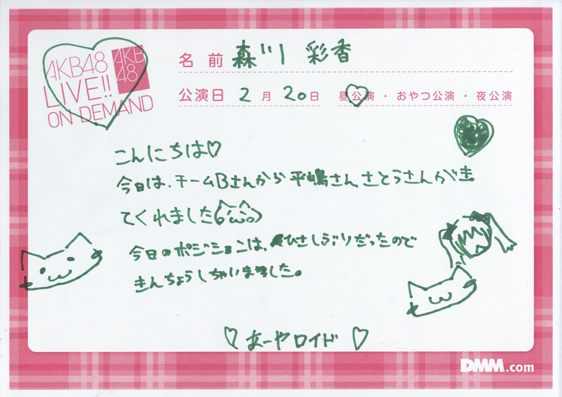 AKB48
LIVE!!
ON DEMAND
AKB
48
名前 森川 彩香
公演日 2月20日 昼公演・おやつ公演・夜公演
こんにちは♡
今日は、チームBさんから平嶋さんさとうさんがき
てくれました
今日のポジションは、ひさしぶりだったので
きんちょうしちゃいました。
♡ あーやロイド ♡
DMM.com